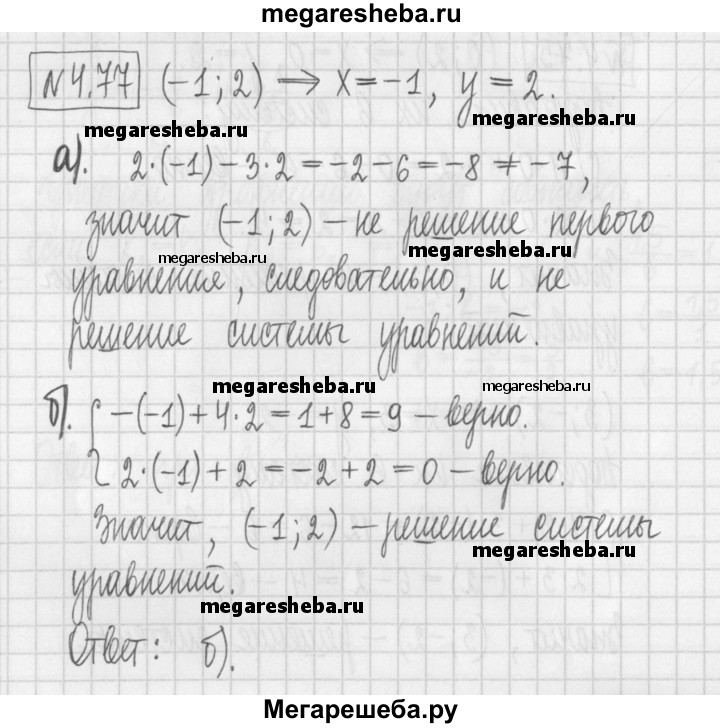 megaresheba.ru
№ 4.77 (-1; 2) ⟹ x = -1, y = 2.
megaresheba.ru
а). 2·(-1) - 3·2 = -2 - 6 = -8 ≠ -7,
значит (-1; 2) - не решение первого
megaresheba.ru megaresheba.ru
уравнения, следовательно, и не
решение системы уравнений.
megaresheba.ru megaresheba.ru
б). { -(-1) + 4·2 = 1 + 8 = 9 - верно.
2·(-1) + 2 = -2 + 2 = 0 - верно.
Значит, (-1; 2) - решение системы
megaresheba.ru
уравнений.
megaresheba.ru
Ответ: б).
Мегарешеба.ру